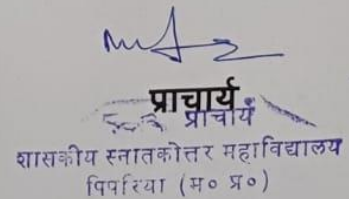 प्राचार्य
प्राचार्य
शासकीय स्नातकोत्तर महाविद्यालय
पिपरिया (म० प्र०)